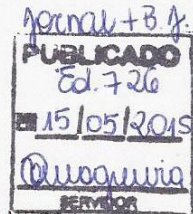 Jornal + B.J.
PUBLICADO
Ed. 726
15/05/2015
SERVIDOR